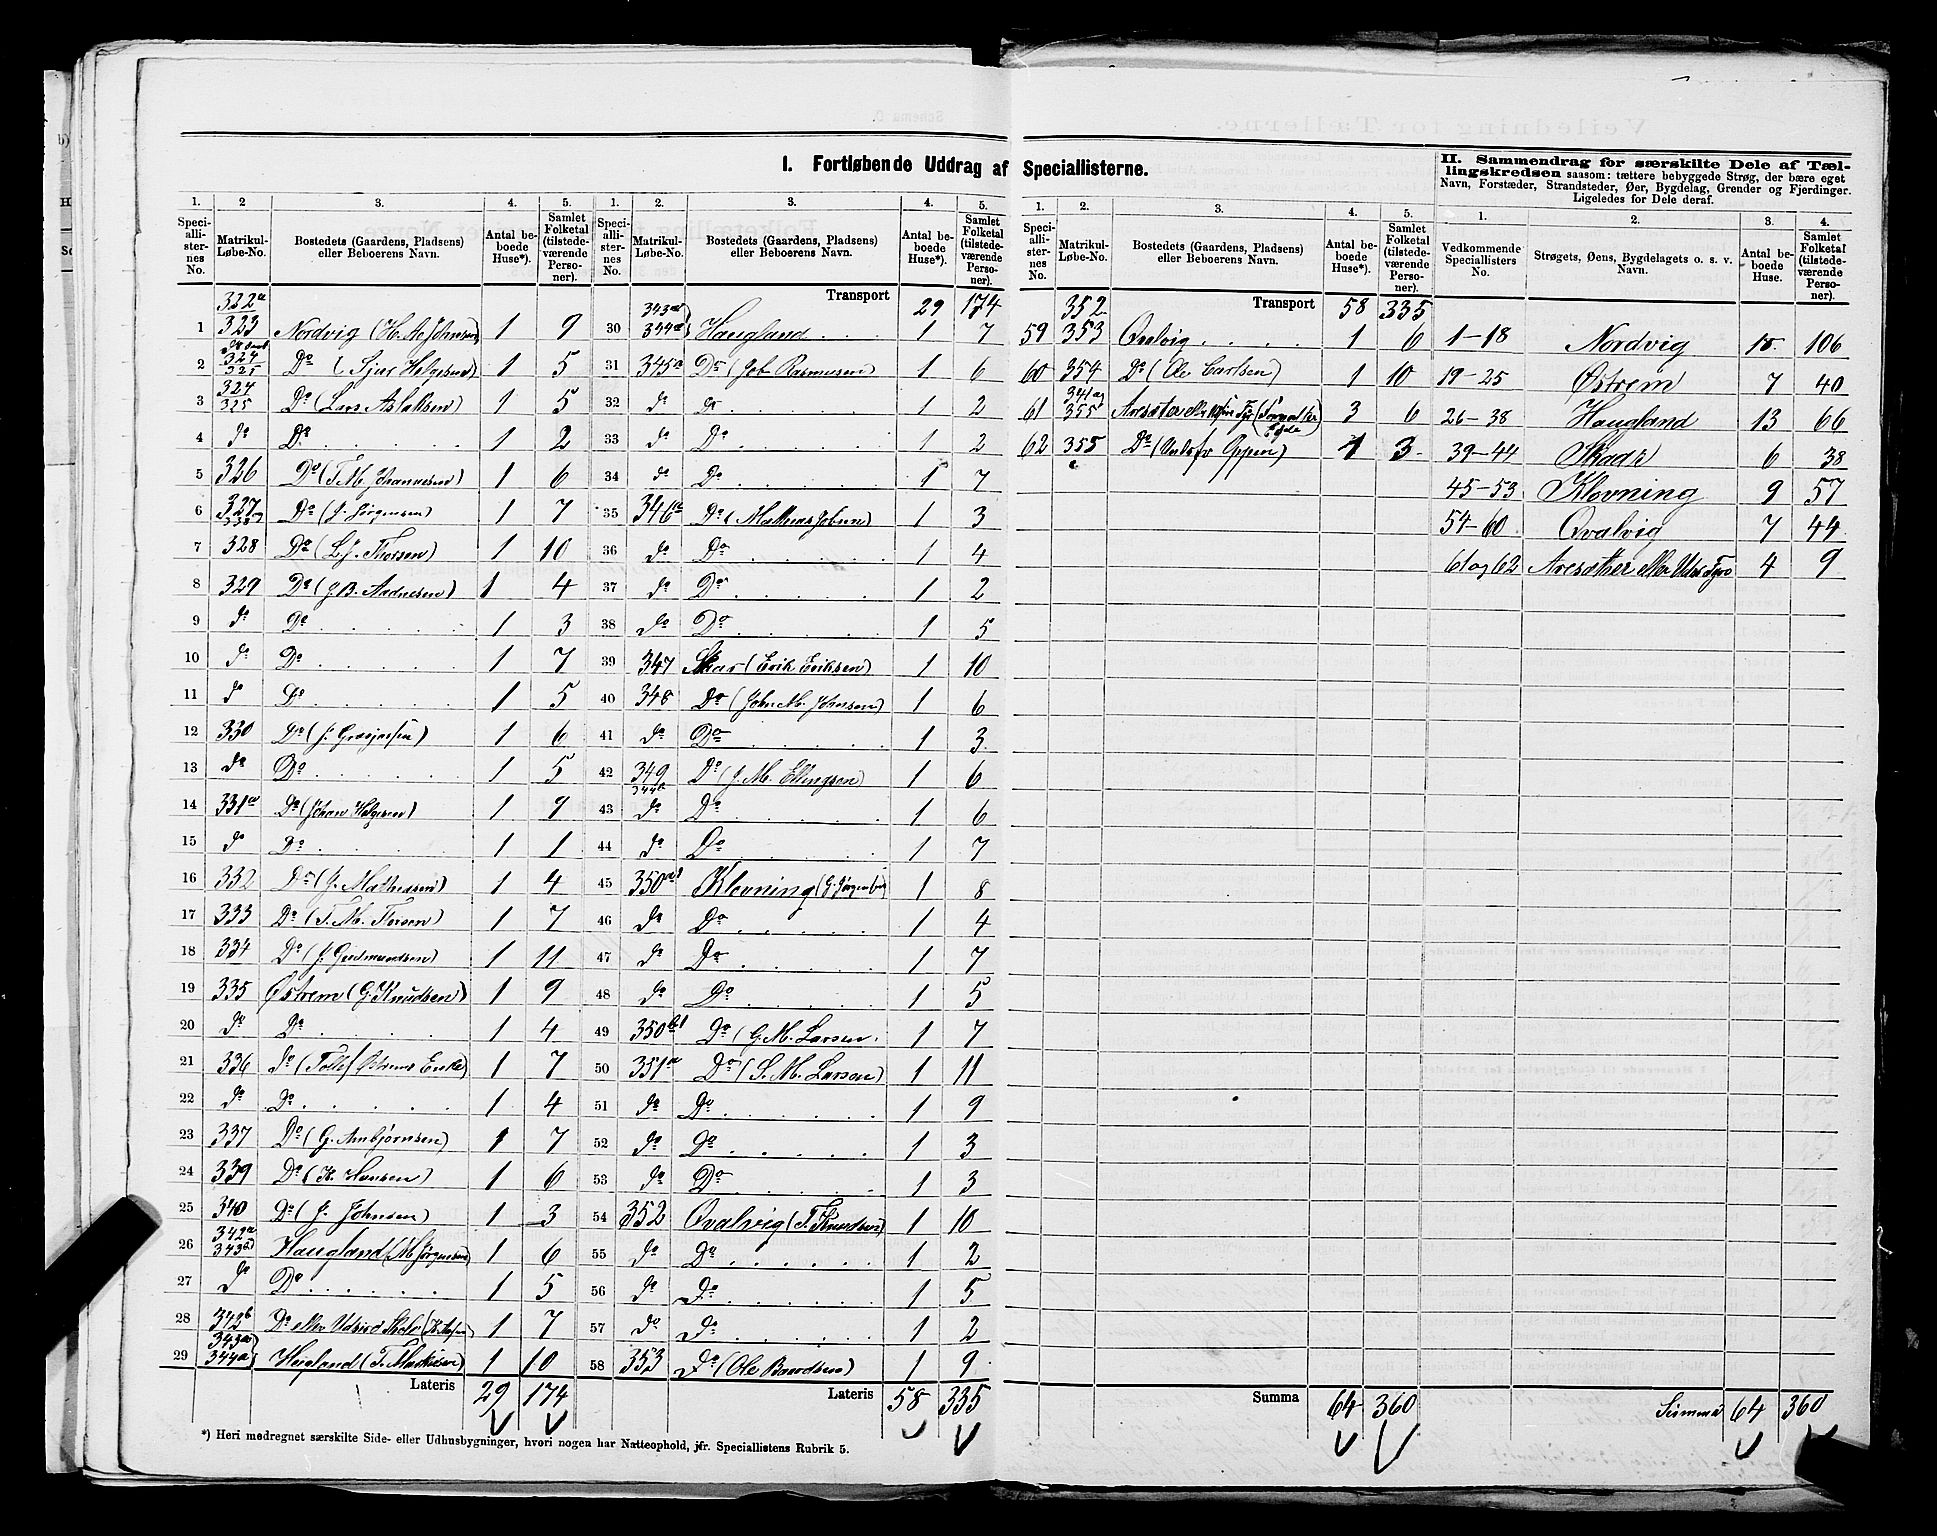 I. Fortløbende Uddrag af Speciallisterne.
II. Sammendrag for særskilte Dele af Tællingskredsen saasom: tættere bebyggede Strøg, der bære eget
Navn, Forstæder, Strandsteder, Øer, Bygdelag, Grender og Fjerdinger.
Ligeledes for Dele deraf.
1. 2 3. 4. 5.
Speciallisternes No. Matrikul-Løbe-No. Bostedets (Gaardens, Pladsens) eller Beboerens Navn. Antal beboede Huse*). Samlet Folketal (tilstedeværende Personer).
322a
1 323 Nordvig (H. A. Johnsen) 1 9
2 324 325 Do (Sjur Helgesen) 1 5
3 324 325 Do (Lars Aslaksen) 1 5
4 do Do 1 2
5 326 Do (T. M. Johannesen) 1 6
6 327 Do (J. Jørgensen) 1 7
7 328 Do (L. J. Thorsen) 1 10
8 329 Do (J. B. Aadnesen) 1 4
9 do Do 1 3
10 do Do 1 7
11 do Do 1 5
12 330 Do (J. ) 1 6
13 do Do 1 5
14 331a Do (Johan Helgesen) 1 9
15 do Do 1 1
16 332 Do (J. Mathiasen) 1 4
17 333 Do (T. M. Thorsen) 1 7
18 334 Do (J. Gudmundsen) 1 11
19 335 Østrem (G. Knudsen) 1 9
20 do Do 1 4
21 336 do ( Østrems Enke) 1 7
22 do Do 1 4
23 337 Do (G. Arnbjørnsen) 1 7
24 339 Do (H. Hansen) 1 6
25 340 Do (J. Johnsen) 1 3
26 342a 343a Haugland (M. Jørgensen) 1 6
27 do Do 1 5
28 342b Do 1 7
29 343a 344a Haugland (T. ) 1 10
Lateris 29 174
1. 2. 3. 4. 5.
Speciallisternes No. Matrikul-Løbe-No. Bostedets (Gaardens, Pladsens) eller Beboerens Navn. Antal beboede Huse*). Samlet Folketal (tilstedeværende Personer).
Transport 29 174
30 343a 344a Haugland 1 7
31 345a Do (Job Rasmusen) 1 6
32 do do 1 2
33 do Do 1 2
34 do Do 1 7
35 346a Do (Mathias Jobsen) 1 3
36 do Do 1 4
37 do Do 1 2
38 do Do 1 5
39 347 Skar (Erik Eriksen) 1 10
40 348 Do (John M. Johnsen) 1 6
41 do Do 1 3
42 349 Do (J. M. Ellingsen) 1 6
43 do Do 1 6
44 do Do 1 7
45 350a Klovning (G. Jørgensen) 1 8
46 do Do 1 4
47 do Do 1 7
48 do Do 1 5
49 350b1 Do (G. M. Larsen. 1 7
50 351a Do (S. M. Larsen) 1 11
51 do Do 1 9
52 do Do 1 3
53 do Do 1 3
54 352 Qvalvig (T. Knudsen) 1 10
55 do Do 1 2
56 do Do 1 5
57 do Do 1 2
58 353 Do (Ole Baardsen) 1 9
Lateris 58 335
*) Heri medregnet særskilte Side- eller Udhusbygninger, hvori nogen har Natteophold, jfr. Speciallistens Rubrik 5.
1. 2. 3. 4. 5.
Speciallisternes No. Matrikul-Løbe-No. Bostedets (Gaardens, Pladsens) eller Beboerens Navn. Antal beboede Huse*). Samlet Folketal (tilstedeværende Personer).
352 Transport 58 335
59 353 Qvalvig 1 6
60 354 Do (Ole Carlsen) 1 10
61 341 og 355 3 6
62 355 Do 1 3
Summa 64 360
1. 2. 3. 4.
Vedkommende Speciallisters No. Strøgets, Øens, Bygdelagets o. s. v. Navn. Antal beboede Huse. Samlet Folketal (tilstedeværende Personer).
1-18 Nordvig 18 106
19-25 Østrem 7 40
26-38 Haugland 13 66
39-44 Skaar 6 38
45-53 Klovning 9 57
54-60 Qvalvig 7 44
61 og 62 4 9
Summa 64 360